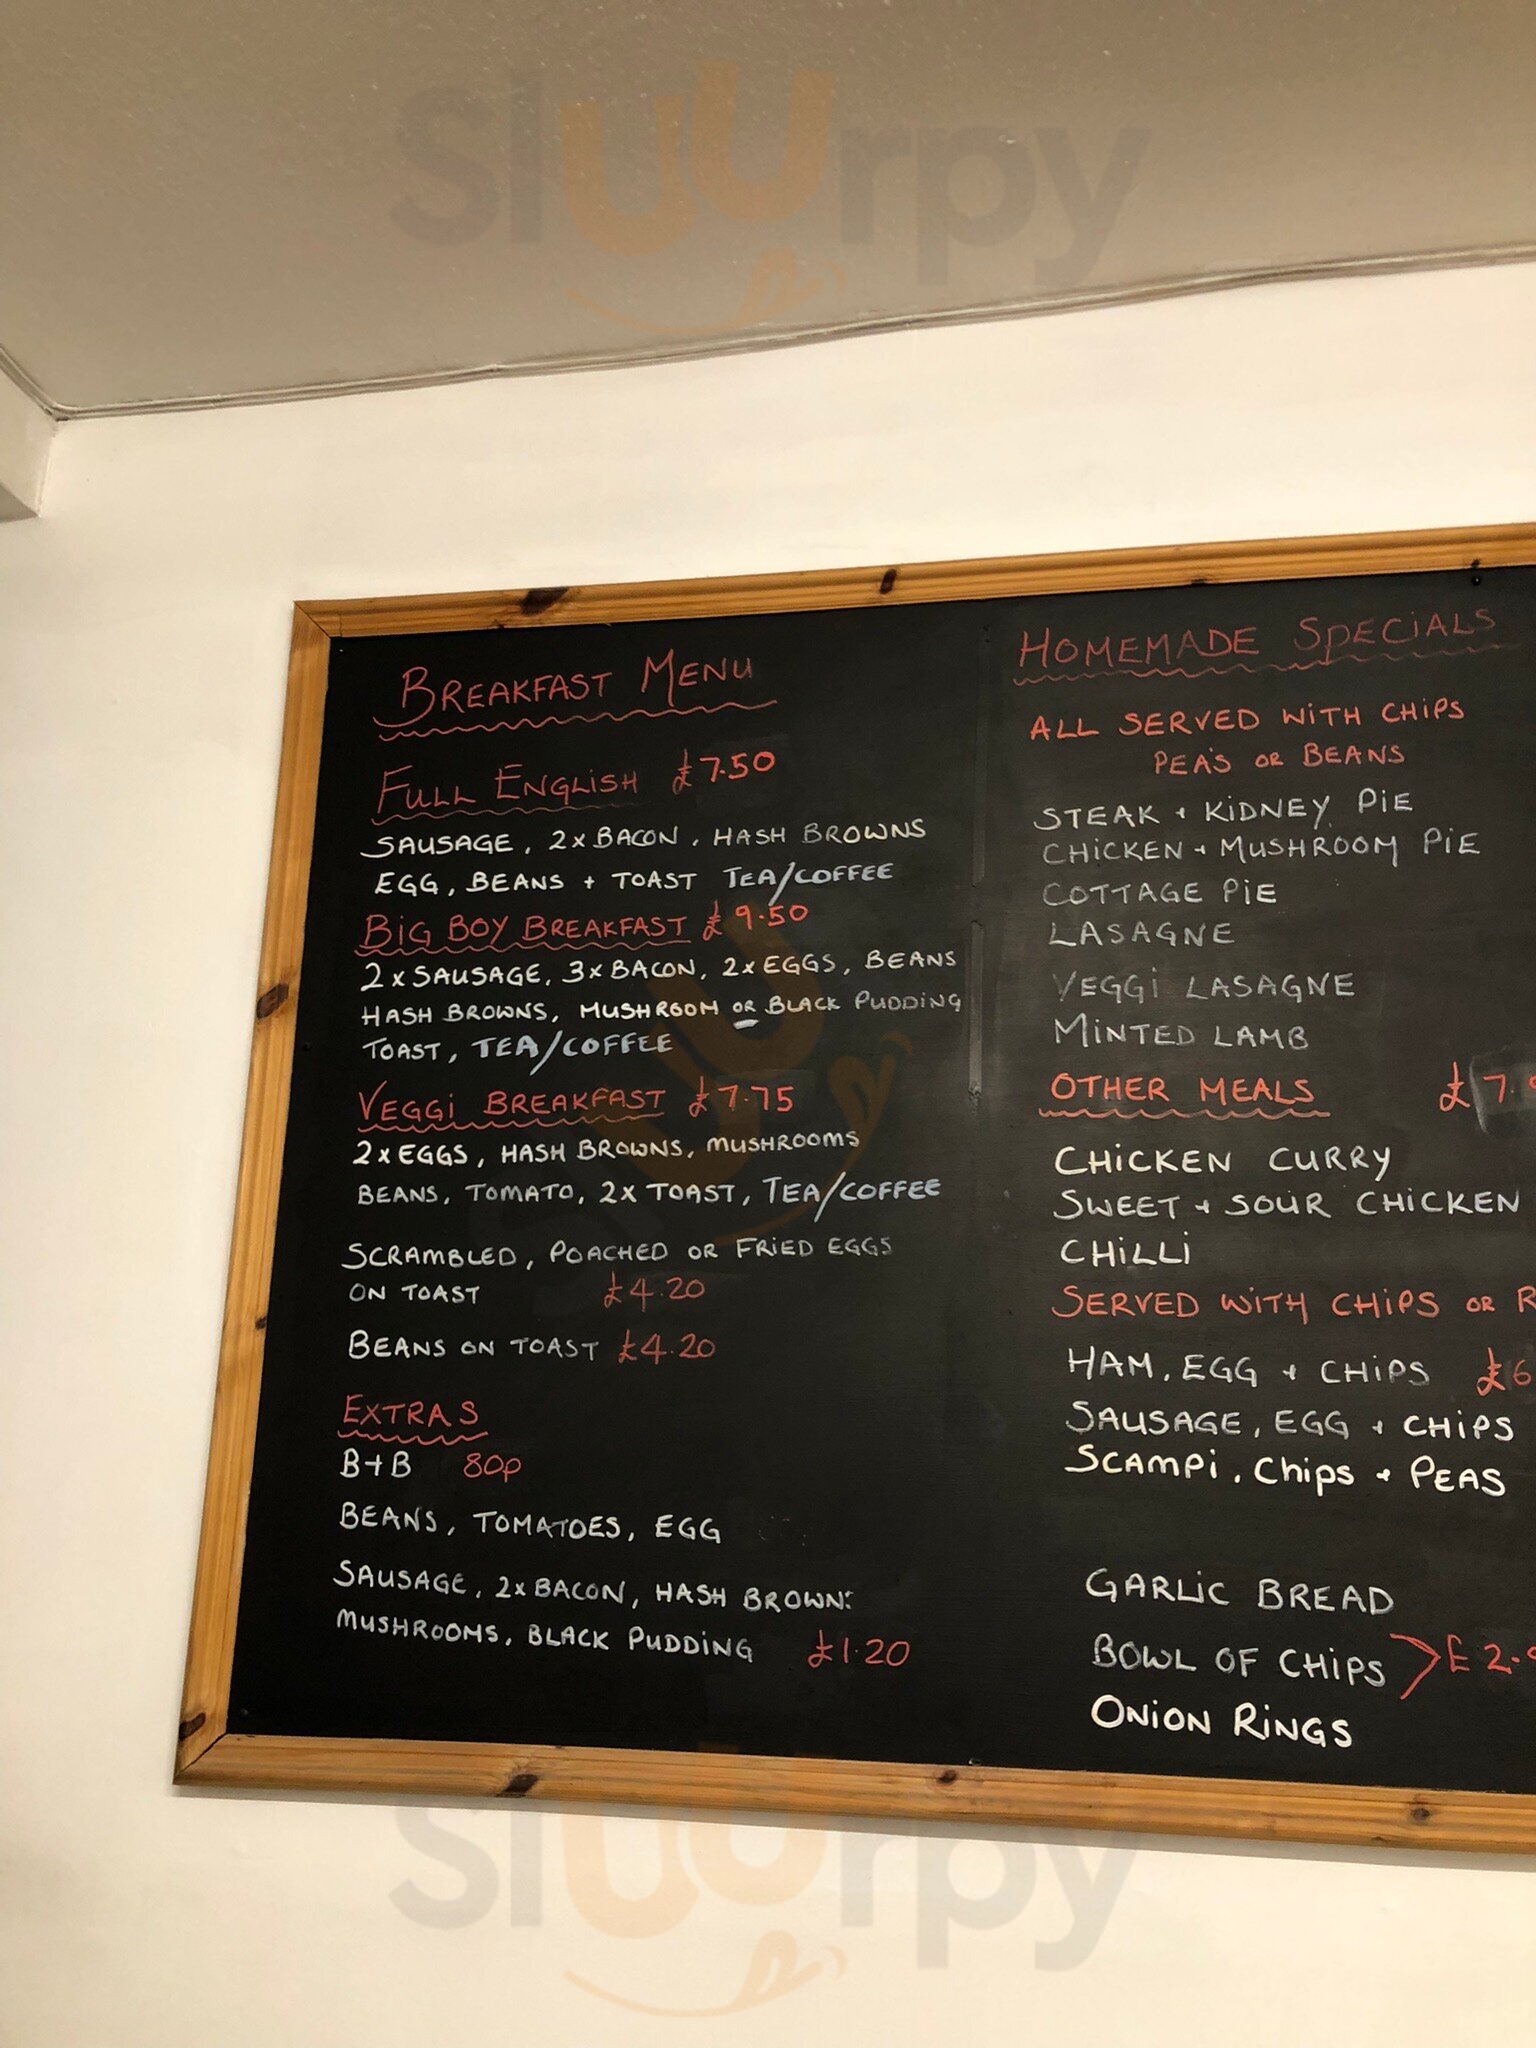 Sluurpy
BREAKFAST MENU
FULL ENGLISH £7.50
SAUSAGE, 2x BACON, HASH BROWNS
EGG, BEANS + TOAST TEA/COFFEE
BIG BOY BREAKFAST £9.50
2x SAUSAGE, 3x BACON, 2x EGGS, BEANS
HASH BROWNS, MUSHROOM OR BLACK PUDDING
TOAST, TEA/COFFEE
VEGGI BREAKFAST £7.75
2x EGGS, HASH BROWNS, MUSHROOMS
BEANS, TOMATO, 2x TOAST, TEA/COFFEE
SCRAMBLED, POACHED OR FRIED EGGS
ON TOAST £4.20
BEANS ON TOAST £4.20
EXTRAS
B+B 80p
BEANS, TOMATOES, EGG
SAUSAGE, 2x BACON, HASH BROWN:
MUSHROOMS, BLACK PUDDING £1.20
HOMEMADE SPECIALS
ALL SERVED WITH CHIPS
PEA'S OR BEANS
STEAK + KIDNEY PIE
CHICKEN + MUSHROOM PIE
COTTAGE PIE
LASAGNE
VEGGI LASAGNE
MINTED LAMB
OTHER MEALS £7.
CHICKEN CURRY
SWEET + SOUR CHICKEN
CHILLI
SERVED WITH CHIPS OR
HAM, EGG + CHIPS £6
SAUSAGE, EGG + CHIPS
SCAMPI, CHIPS + PEAS
GARLIC BREAD
BOWL OF CHIPS £2.
ONION RINGS
Sluurpy